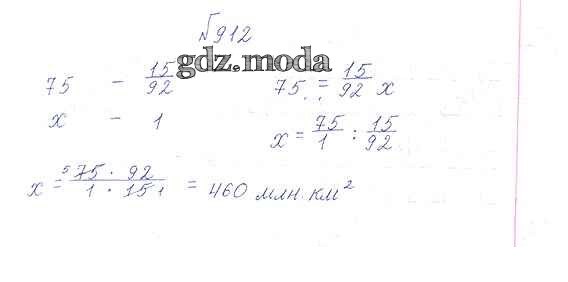 №912
gdz.moda
75 - 15/92 75 = 15/92 x
x - 1 x = 75/1 : 15/92
x = ⁵75 · 92 / 1 · 15 ₁ = 460 млн. км²